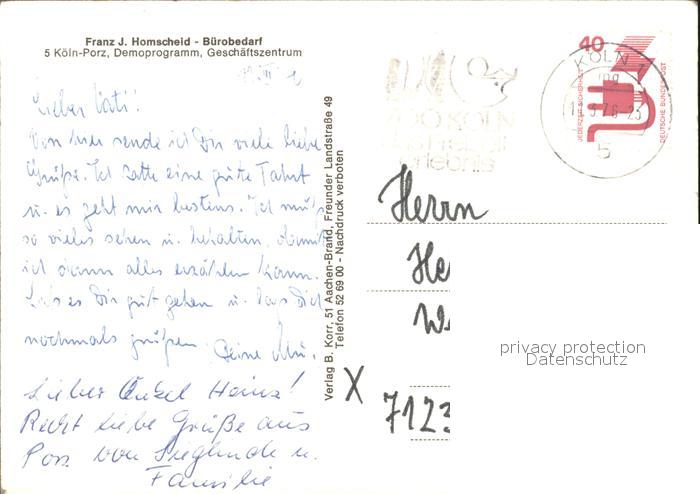 Franz J. Homscheid - Bürobedarf
5 Köln-Porz, Demoprogramm, Geschäftszentrum
Lieber Vati!
Von hier sende ich Dir viele liebe
Grüße. Ich hatte eine gute Fahrt
u. es geht mir bestens. Ich muß
so vieles sehen u. behalten, damit
ich dann alles erzählen kann.
Lass es Dir gut gehen u. lass Dich
nochmals grüßen. Deine
Lieber Onkel Heinz!
Recht liebe Grüße aus
Porz von Sieglinde u.
Familie
Verlag B. Korr, 51 Aachen-Brand, Freunder Landstraße 49
Telefon 52 69 00 - Nachdruck verboten
KÖLN
erlebnis
40
JEDERZEIT SICHERHEIT
DEUTSCHE BUNDESPOST
KÖLN 1
5
Herrn
He
W
X
7123
privacy protection
Datenschutz